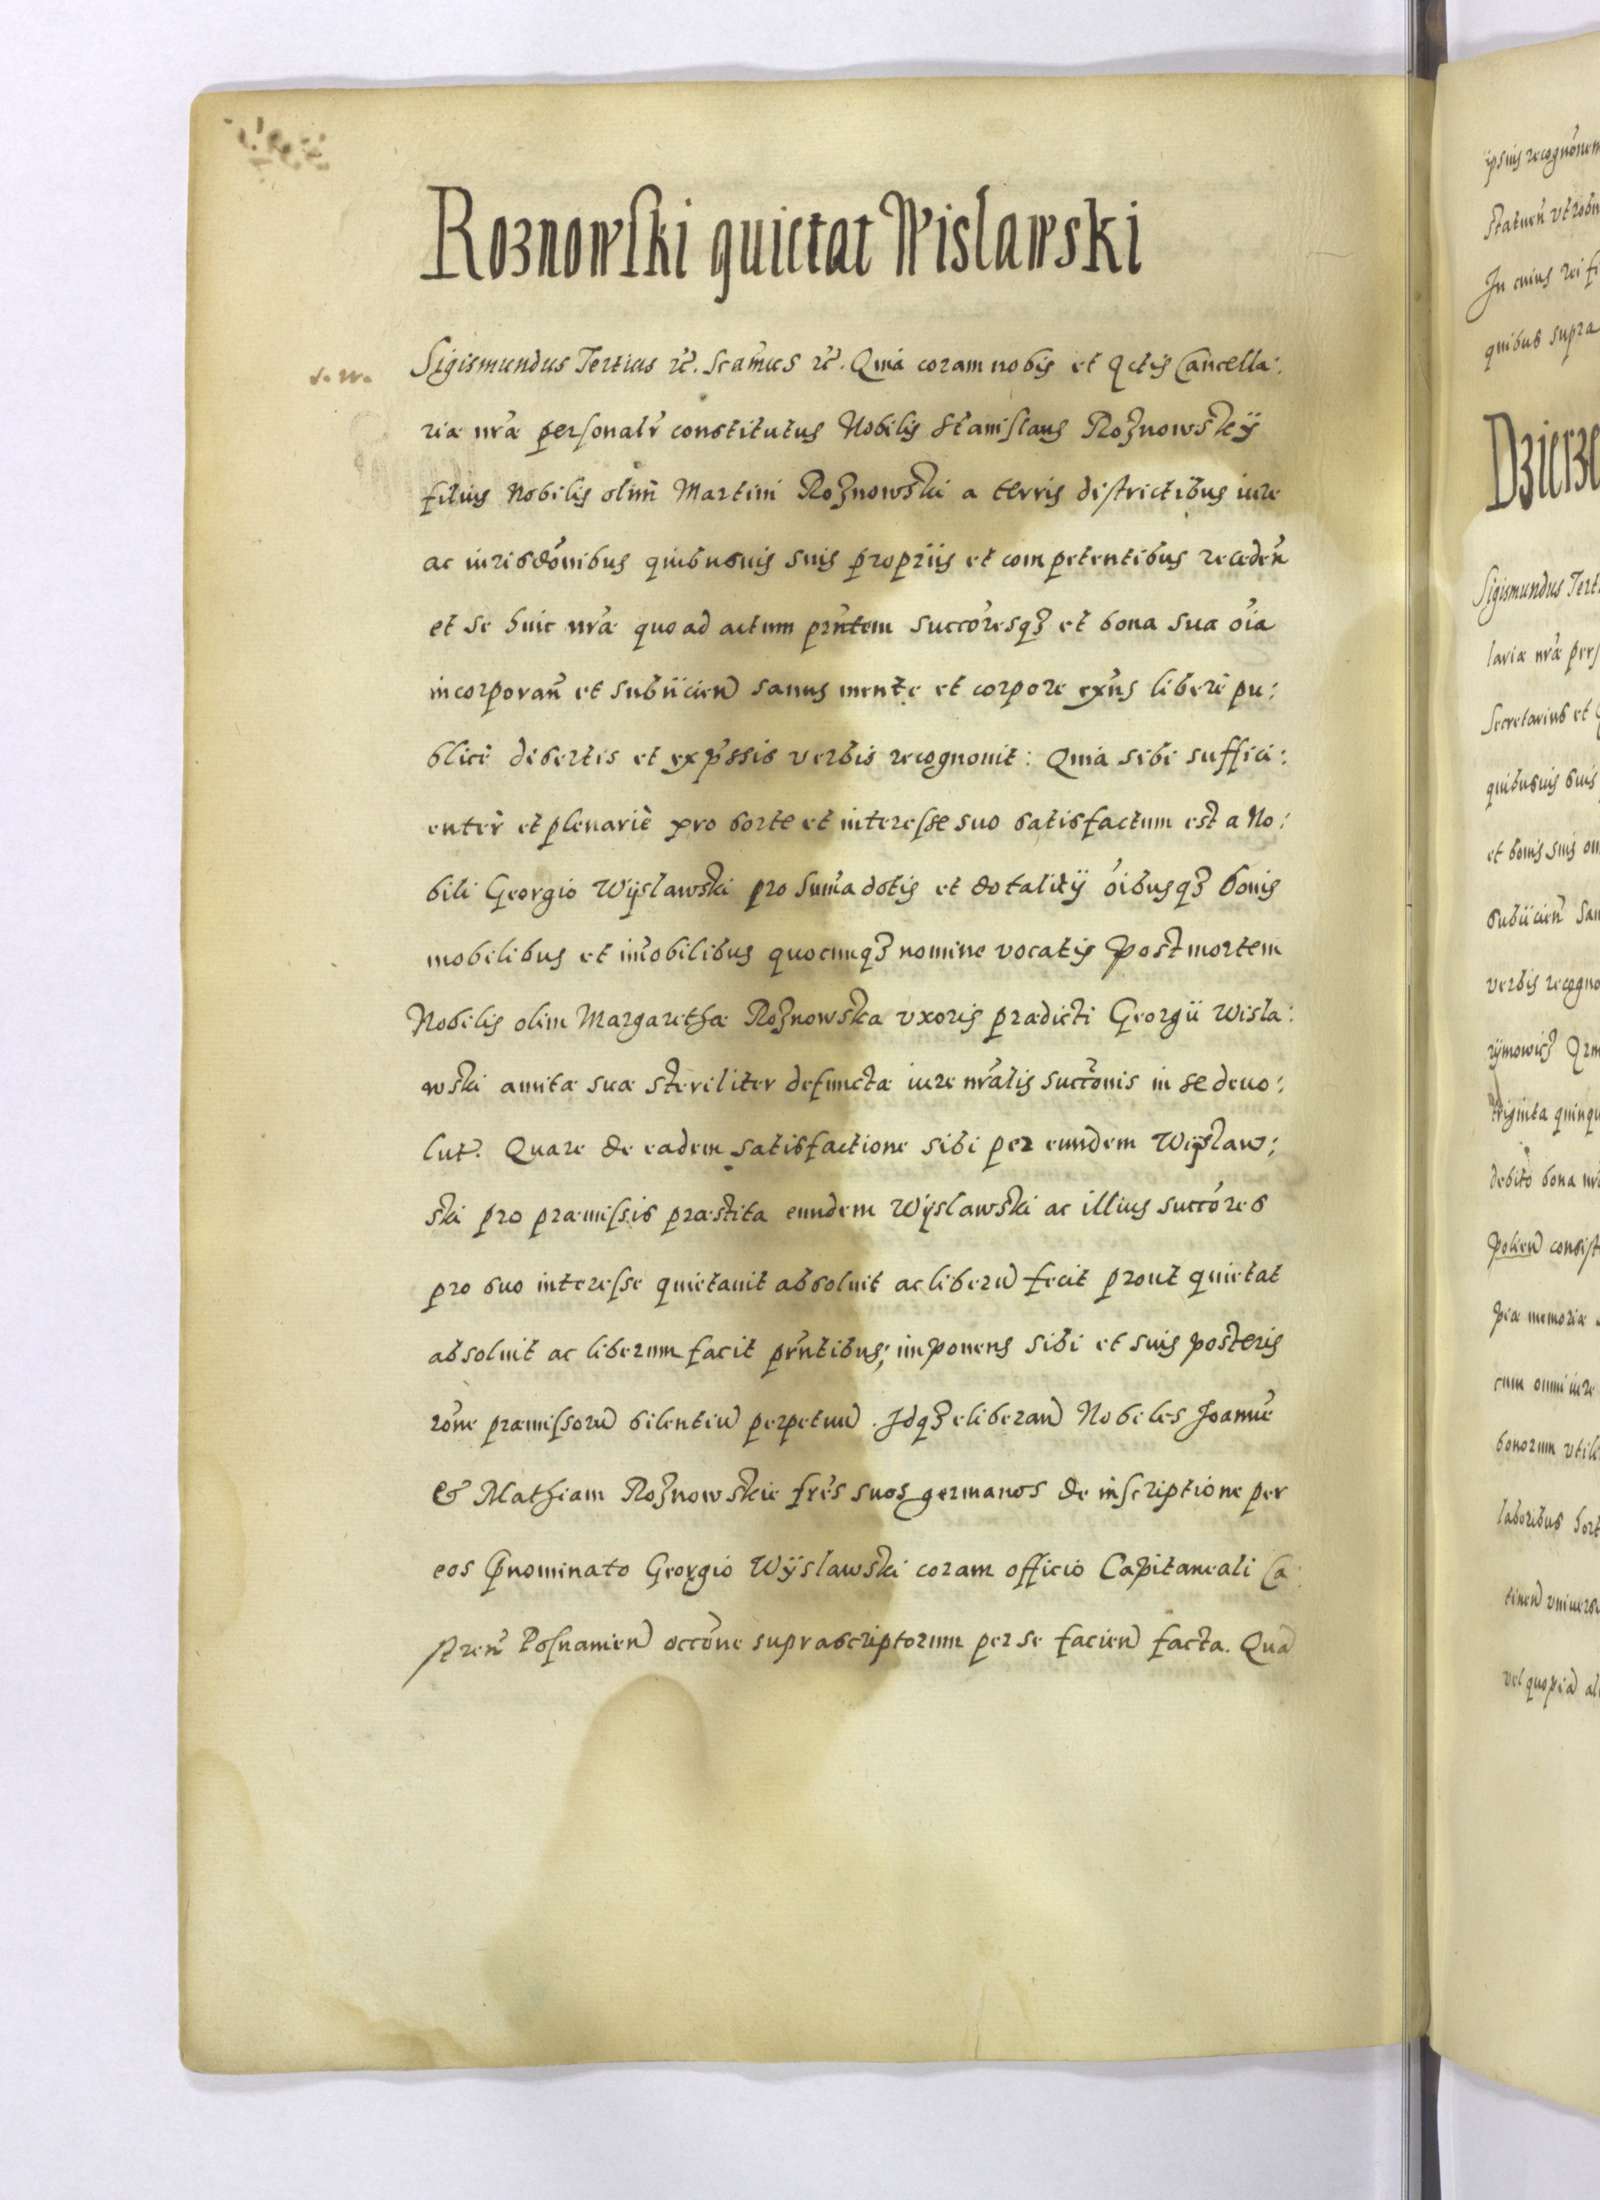 Roznowski quictat Wislawski
S. W.
Sigismundus Tertius rc̃. Scamus rc̃. Quia coram nobis et Actis Cancella:
riæ nrã personalr̃ constitutus Nobilis Stanislaus Roznowskÿ
filius Nobilis olim Martini Roznowski a terris districtibus iure
ac iurisdõnibus quibusuis suis proprÿs et competentibus receden̄
et se huic nrã quo ad actum prñtem succõresq3 et bona sua õia
incorporan̄ et subÿcien̄ sanus mente et corpore exñs liberè pu:
blicè disertis et exp̃ssis verbis recognouit: Quia sibi suffici:
enter̃ et plenariè pro sorte et interesse suo satisfactum est a No:
bili Georgio Wÿslawski pro sum̃a dotis et dotalitÿ õibusq3 bonis
mobilibus et im̃obilibus quocunq3 nomine vocatis post mortem
Nobilis olim Margarethæ Roznowska vxoris prædicti Georgii Wisla:
wski amitæ suæ steriliter defunctæ iure nrãlis succõnis in se deuo:
lut̃. Quare de eadem satisfactione sibi per eundem Wyslaw:
ski pro præmissis præstita eundem Wÿslawski ac illius succõres
pro suo interesse quietauit absoluit ac liberū fecit prout quietat
absoluit ac liberum facit prñtibus; imponens sibi et suis posteris
rõne præmissorū silentiū perpetuū. Idq3 eliberan̄ Nobiles Joannē
& Mathiam Roznowskie frẽs suos germanos de inscriptione per
eos p̃nominato Georgio Wÿslawski coram officio Capitaneali Ca:
stren̄ Posnanien̄ occõne suprascriptorum per se facien̄ facta. Quā
ipsius recognõnem
statuen̄
In cuius rei
quibus supra
Dzierze
Sigismundus Tert
lariæ nrã pers
Secretarius et
quibusuis suis
et bonis suis
subÿcien̄ San
verbis recogno
rÿmowicz
triginta quinqu
debito bona
consist
piæ memoriæ
cum omni iure
bonorum vtil
laboribus hort
tinen̄ vniuers
vel quopiā al